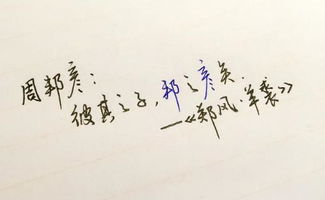 周邦彦：
彼其之子，邦之彦兮。
—《郑风·羔裘》